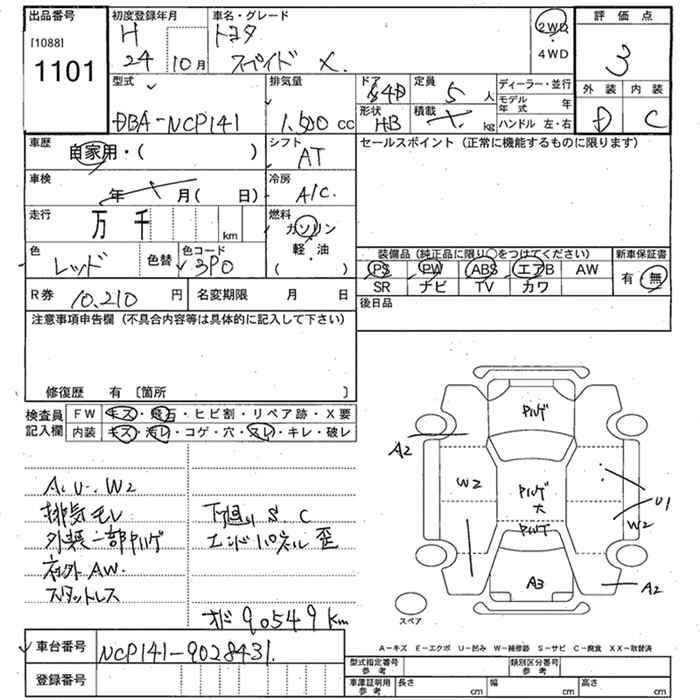 出品番号
[1088]
1101
初度登録年月
H
24 10月
車名・グレード
トヨタ
スペイド X
2WD
4WD
評価点
3
外装 内装
D C
型式
DBA-NCP141
排気量
1,500 cc
ドア
4D
形状
HB
定員
5 人
積載
kg
ディーラー・並行
モデル年式 年
ハンドル 左・右
車歴
自家用・( )
シフト
AT
セールスポイント (正常に機能するものに限ります)
車検
年 月( 日)
冷房
A/C.
走行
万 千
km
燃料
ガソリン
軽・油
( )
色
レッド
色替
色コード
3P0
装備品 (純正品に限り〇をつけてください)
PS PW ABS エアB AW
SR ナビ TV カワ
新車保証書
有・無
R券
10,210 円
名変期限 月 日
後日品
注意事項申告欄 (不具合内容等は具体的に記入して下さい)
修復歴 有 〔箇所 〕
検査員記入欄
FW キズ・飛石・ヒビ割・リペア跡・X要
内装 キズ・汚レ・コゲ・穴・スレ・キレ・破レ
A.U.W2
排気モレ
外装一部ハゲ
社外AW.
スタットレス
下廻り S.C
エンドパネル歪
オド90549km
A2
W2
U1
W2
A3
A2
スペア
A-キズ E-エクボ U-凹み W-補修跡 S-サビ C-腐食 XX-取替済
車台番号
NCP141-9028431.
登録番号
型式指定番号 参考
類別区分番号 参考
車庫証明用 参考
長さ cm
幅 cm
高さ cm